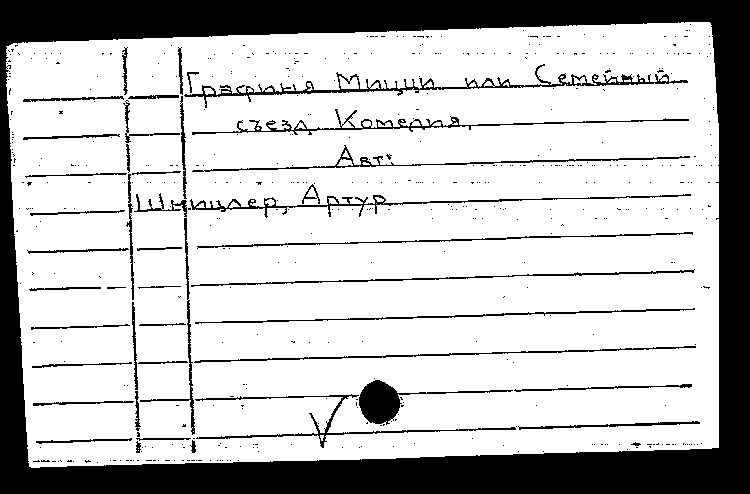 Графиня Мицци или Семейный
съезд Комедия.
Авт:
Шницлер, Артур